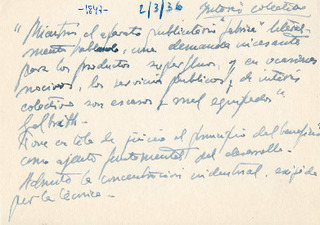 -1847- 2/3/36 Interés colectivo
"Mientras el aparato publicitario "fabrica" literal-
mente hablando, una demanda incesante
para los productos superfluos, y en ocasiones
nocivos, los servicios publicos y de interés
colectivo son escasos y mal equipados"
Galbraith.
Pone en tela de juicio el principio del beneficio
como agente fundamental del desarrollo.
Admite la concentracion industrial, exigida
por la técnica.